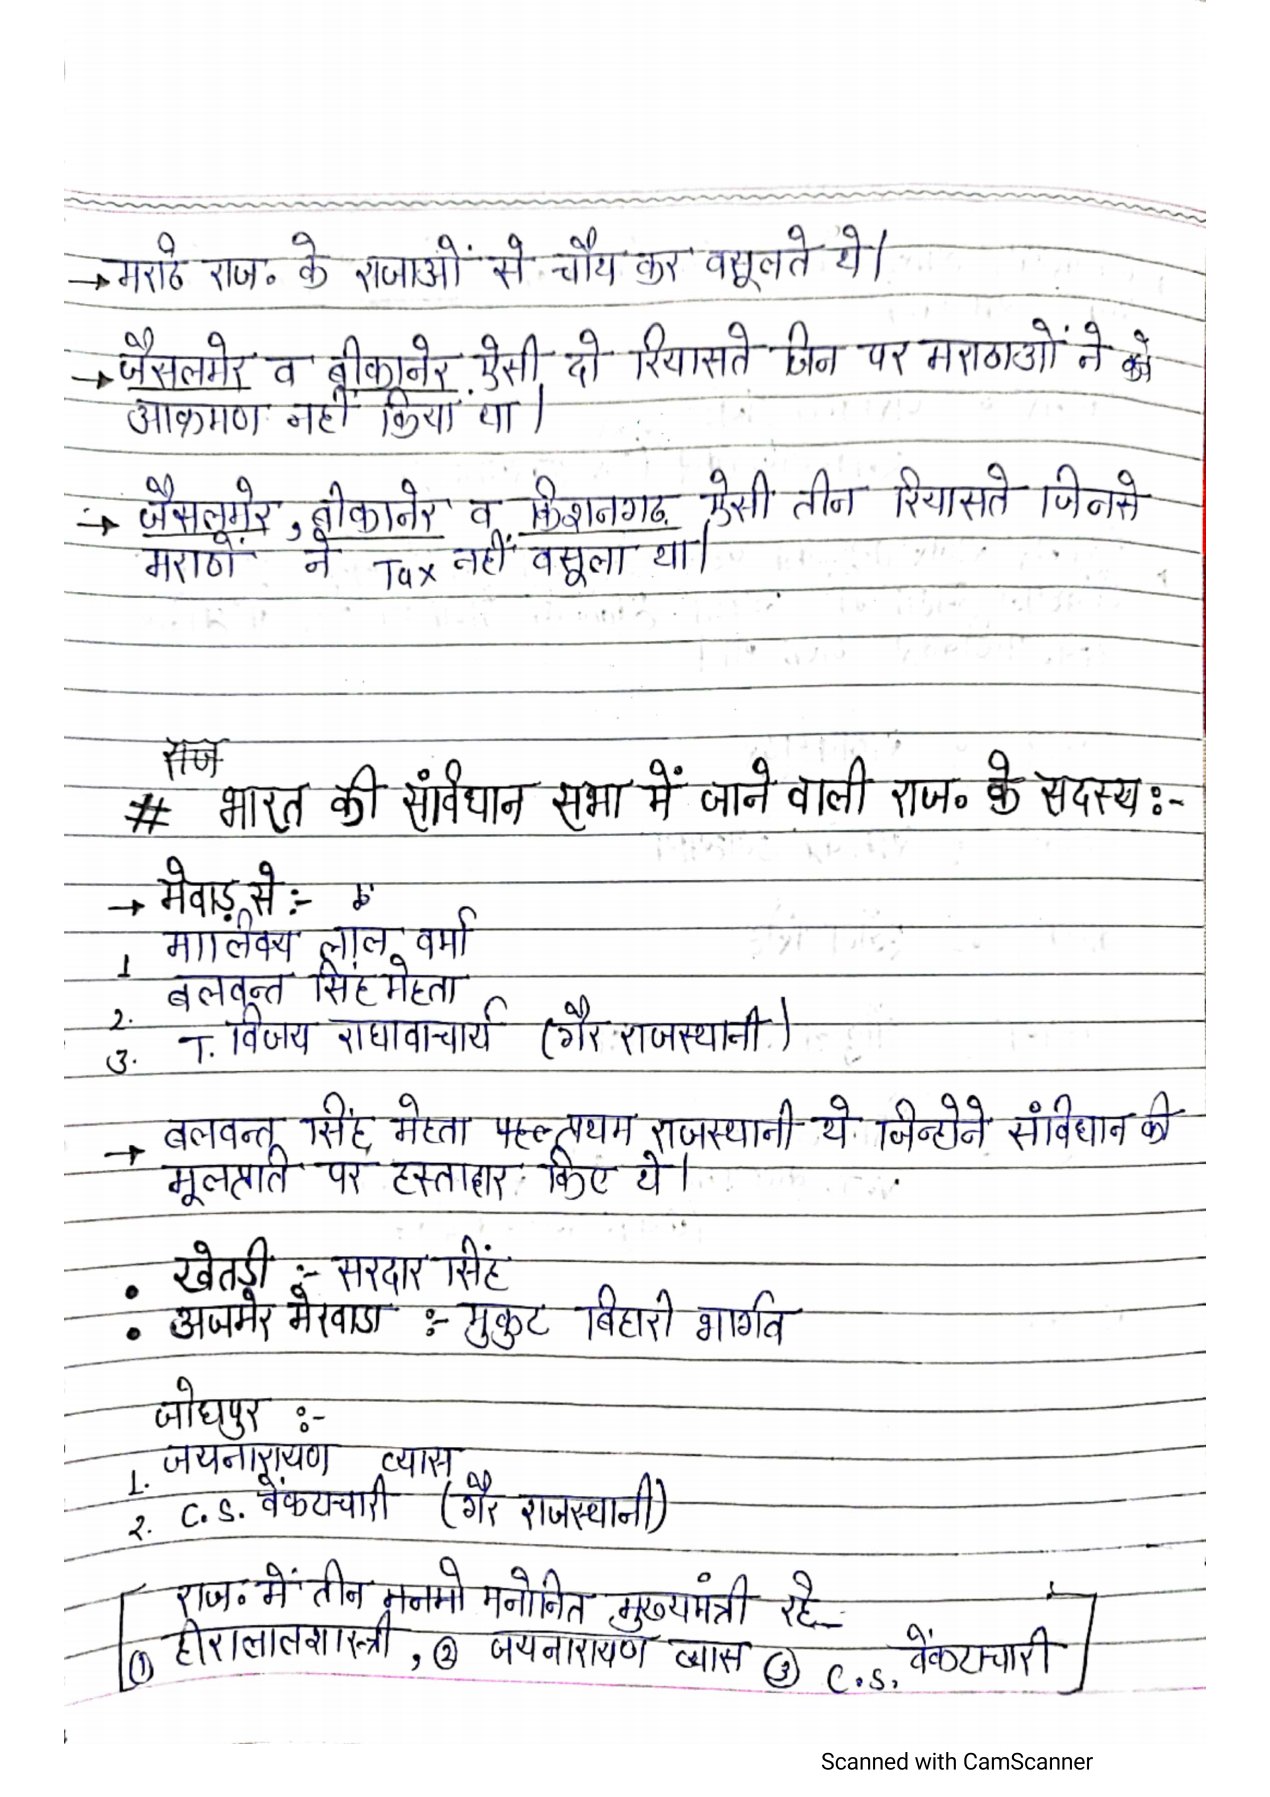 → मराठे राज॰ के राजाओं से चौथ कर वसूलते थे।
→ जैसलमेर व बीकानेर ऐसी दो रियासते जिन पर मराठाओं ने
आक्रमण नहीं किया था।
→ जैसलमेर, बीकानेर व किशनगढ ऐसी तीन रियासते जिनसे
मराठों ने Tax नहीं वसूला था।
राज
# भारत की संविधान सभा में जाने वाली राज॰ के सदस्य :-
→ मेवाड़ से :-
1 माालिक्य लाल वर्मा
2. बलवन्त सिंह मेहता
3. T. विजय राघावाचार्य (गैर राजस्थानी)
→ बलवन्त सिंह मेहता राजस्थानी थे जिन्होने संविधान की
मूलप्रति पर हस्ताक्षर किए थे।
• खेतड़ी :- सरदार सिंह
• अजमेर मेरवाडा :- मुकुट बिहारी भार्गव
जोधपुर :-
1. जयनारायण व्यास
2. C. S. वेंकटाचारी (गैर राजस्थानी)
राज॰ में तीन मनमो मनोनित मुख्यमंत्री रहे-
① हीरालालशास्त्री, ② जयनारायण व्यास ③ C. S. वेंकटाचारी
Scanned with CamScanner